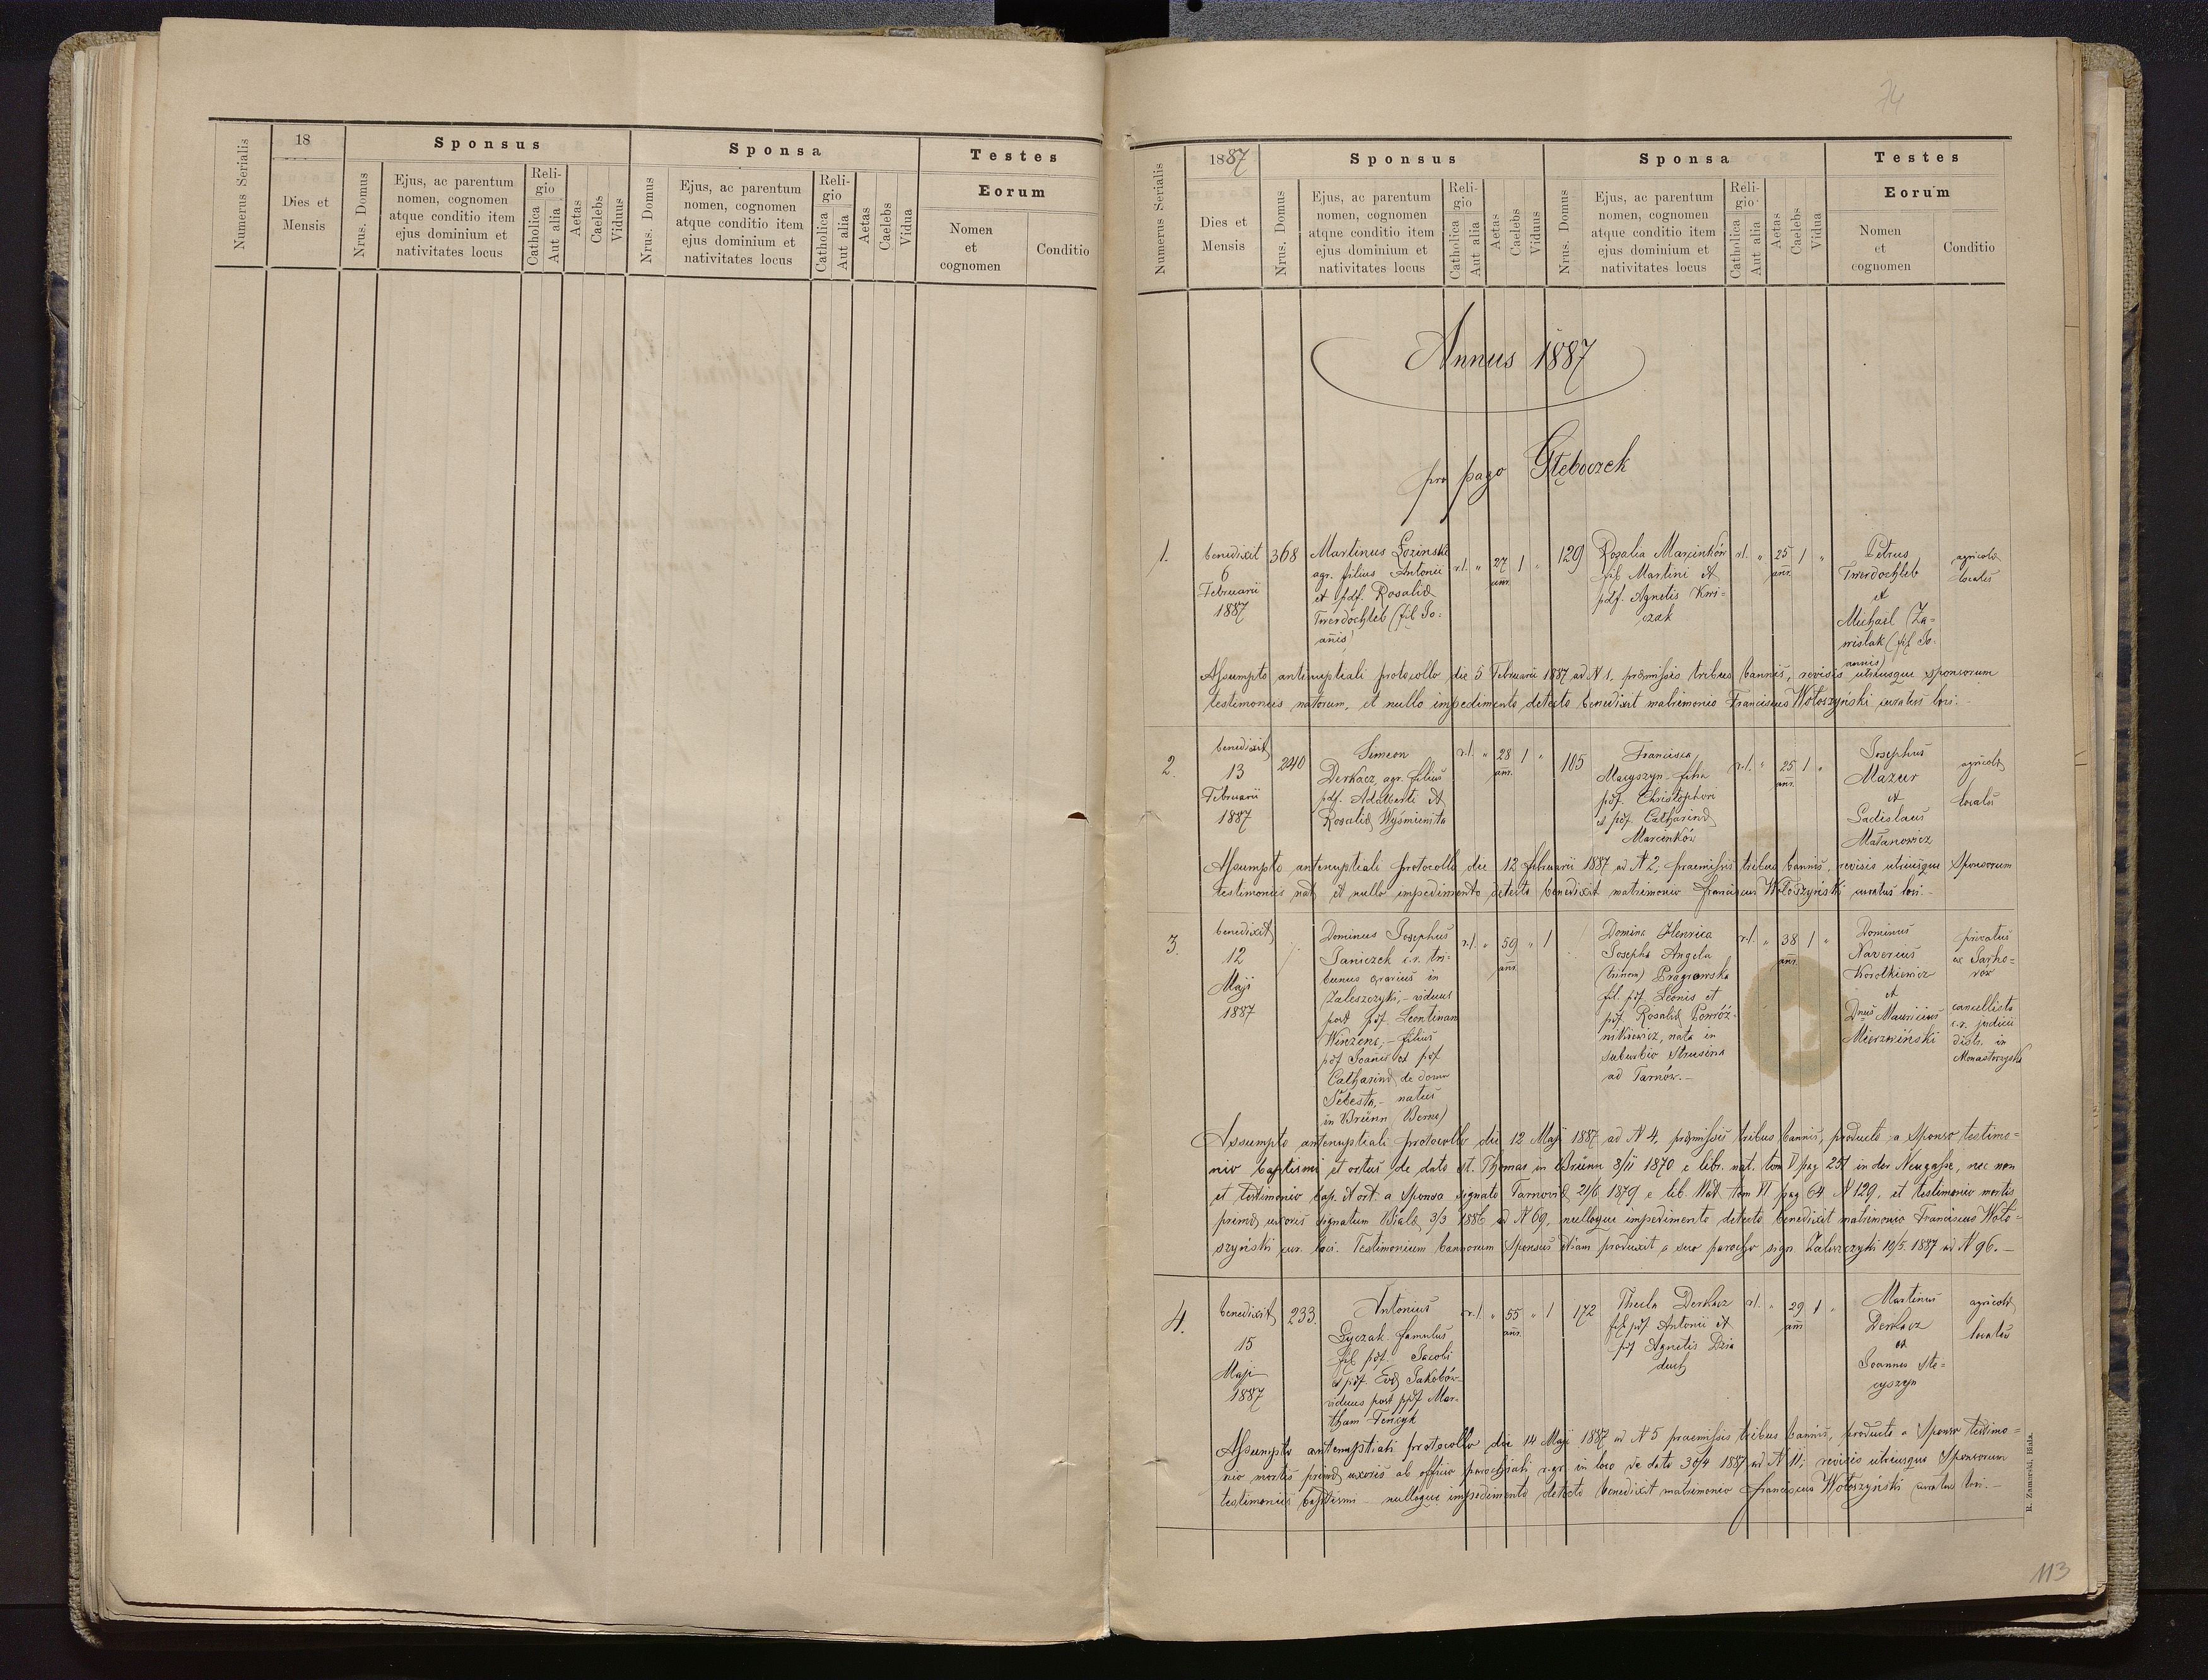 Numerus Serialis
18
Dies et
Mensis
Sponsus
Nrus. Domus
Ejus, ac parentum
nomen, cognomen
atque conditio item
ejus dominium et
nativitates locus
Reli-
gio
Catholica
Aut alia
Aetas
Caelebs
Viduus
Sponsa
Nrus. Domus
Ejus, ac parentum
nomen, cognomen
atque conditio item
ejus dominium et
nativitates locus
Reli-
gio
Catholica
Aut alia
Aetas
Caelebs
Vidua
Testes
Eorum
Nomen
et
cognomen
Conditio
74
Numerus Serialis
1887
Dies et
Mensis
Sponsus
Nrus. Domus
Ejus, ac parentum
nomen, cognomen
atque conditio item
ejus dominium et
nativitates locus
Reli-
gio
Catholica
Aut alia
Aetas
Caelebs
Viduus
Sponsa
Nrus. Domus
Ejus, ac parentum
nomen, cognomen
atque conditio item
ejus dominium et
nativitates locus
Reli-
gio
Catholica
Aut alia
Aetas
Caelebs
Vidua
Testes
Eorum
Nomen
et
cognomen
Conditio
Annus 1887
pro pago Głęboczek
1.
benedixit
6
Februarii
1887
368
Martinus Łozinski
agr. filius Antonii
et pdf. Rosaliæ
Twerdochleb (fil Jo-
anis)
r.l. " 27 ann. 1 "
129
Rosalia Marcinków
fil Martini et
pdf. Agnetis Kwi=
czak
r.l. " 25 ann. 1 "
Petrus
Twerdochleb
et
Michael Za=
wislak (fil Jo-
annis)
agricolæ
locales
Assumpto antinuptiali protocollo die 5 Februarii 1887 ad N 1, præmissis tribus bannis, revisis utriusque sponsorum
testimoniis natorum, et nullo impedimento detecto benedixit matrimonio Franciscus Wołoszyński curatus loci.-
2.
benedixit
13
Februarii
1887
240
Simeon
Derkacz, agr. filius
pdf. Adalberti et
Rosaliæ Wyśmienita
r.l. " 28 ann. 1 "
105
Francisca
Macyszyn filia
pdf. Christophori
et pdf. Catharinæ
Marcinków
r.l. " 25 ann. 1 "
Josephus
Mazur
et
Ladislaus
Małanowicz
agricolæ
locales
Assumpto antenuptiali protocollo die 12 februarii 1887 ad N 2, praemissis tribus bannis, revisis utriusque Sponsorum
testimoniis nat, et nullo impedimento detecto benedixit matrimonio franciscus Wołoszyński curatus loci.-
3.
benedixit
12
Maji
1887
Dominus Josephus
Janiczek c.r. tri-
bunus in
Zaleszczyki,- viduus
post pdf. Leontinam
Winzens,- filius
pdf Joanis et pdf
Catharinæ de domo
Šebesta,- natus
in Brünn (Berno)
r.l. " 59 ann. " 1
Domina Henrica
Josepha Angela
(trinom) Pragłowska
fil. pdf Leonis et
pdf. Rosaliæ Powróź-
nikiewicz, nata in
suburbio Strusina
ad Tarnów.-
r.l. " 38 ann. 1 "
Dominus
Xaverius
Korotkiewicz
et
Dnus Mauricius
Mierzwiński
privatus
ex Jarho=
rów
cancellista
c.r. judicii
distr. in
Monasterzyska
Assumpto antenuptiali protocollo die 12 Maji 1887 ad N 4, præmissis tribus bannis, producto a Sponso testimo=
nio baptismi et ortus de dato st. Thomas in Brünn 8/11 1870 e libr. nat. tom V pag 257 in der Neugasse, nec non
et testimonio bap. et ort. a Sponsa signato Tarnoviæ 21/6 1879 e lib. Nat tom VI pag 64 N 129, et testimonio mortis
primæ uxoris signatum Biale 3/3 1886 ad N 69, nulloque impedimento detecto benedixit matrimonio Franciscus Woło=
szyński cur. loci. Testimonium bannorum Sponsus etiam produxit a suo parocho sign. Zaleszczyki 10/5 1887 ad N 96.-
4.
benedixit
15
Maji
1887
233.
Antonius
Gyczak famulus
fil pdf. Jacobi
et pdf. Evæ Jakobów
viduus post pdf Mar-
tham Feńczyk
r.l. " 55 ann. " 1
172
Thecla Derkacz
fil pdf Antonii et
pdf Agnetis Dzia
duch
r.l. " 29 ann 1 "
Martinus
Derkacz
et
Joannes Ste=
cyszyn
agricolæ
locales
Assumpto antenuptiali protocollo die 14 Maji 1887 ad N 5 praemissis tribus bannis, producto a Sponso testimo=
nio mortis primæ uxoris ab officio parochiali r.gr. in loco de dato 30/4 1887 ad N 11, revisis utriusque Sponsorum
testimoniis baptismi - nulloque impedimento detecto benedixit matrimonio franciscus Wołoszyński curatus loci.-
R. Zamarski, Biała.
113